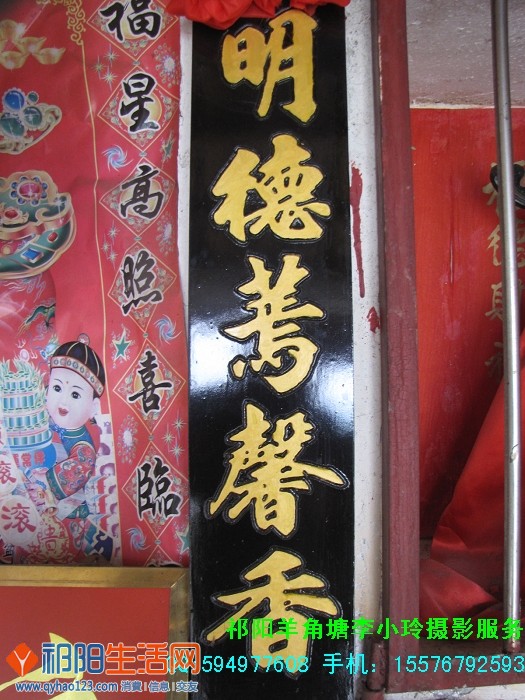 福星高照喜臨
明德薦馨香
滾
滾
祁阳羊角塘李小玲摄影服务
祁阳生活网
594977608 手机：15576792593
www.qyhao123.com 消费 信息 交友